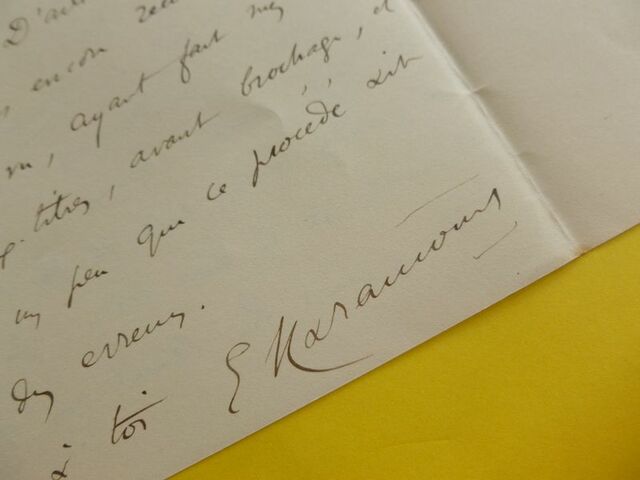 D'ail
encore
vu, ayant fait mes
titres, avant brochage, et
un peu que ce procédé
des erreurs.
à toi E Haraucourt